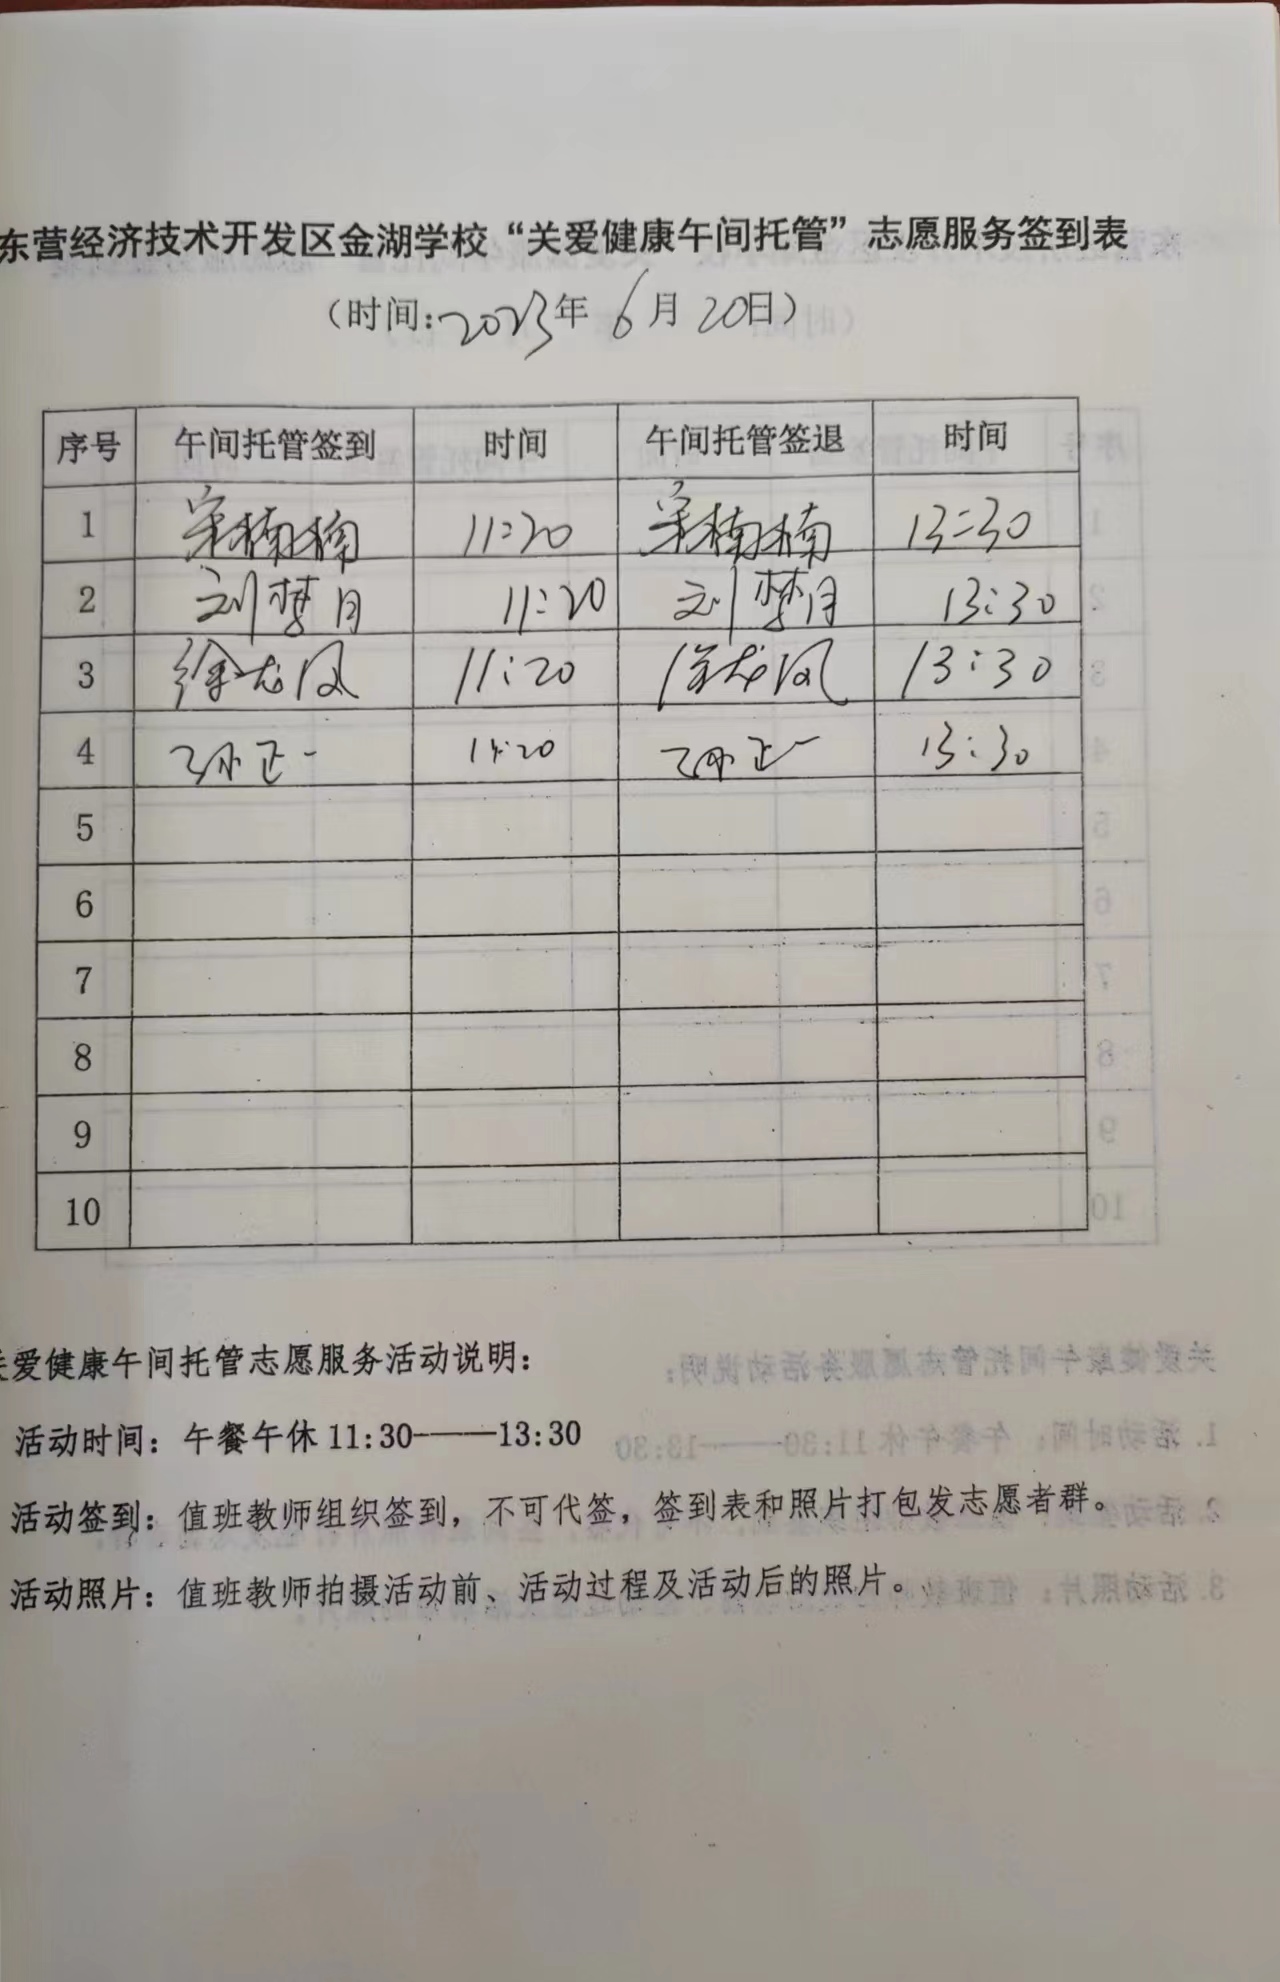 东营经济技术开发区金湖学校“关爱健康午间托管”志愿服务签到表
（时间:2023年6月20日）
序号 午间托管签到 时间 午间托管签退 时间
1 宋楠楠 11:20 宋楠楠 13:30
2 刘梦月 11:20 刘梦月 13:30
3 徐龙凤 11:20 徐龙凤 13:30
4 孙正一 11:20 孙正一 13:30
5
6
7
8
9
10
关爱健康午间托管志愿服务活动说明：
活动时间：午餐午休11:30——13:30
活动签到：值班教师组织签到，不可代签，签到表和照片打包发志愿者群。
活动照片：值班教师拍摄活动前、活动过程及活动后的照片。